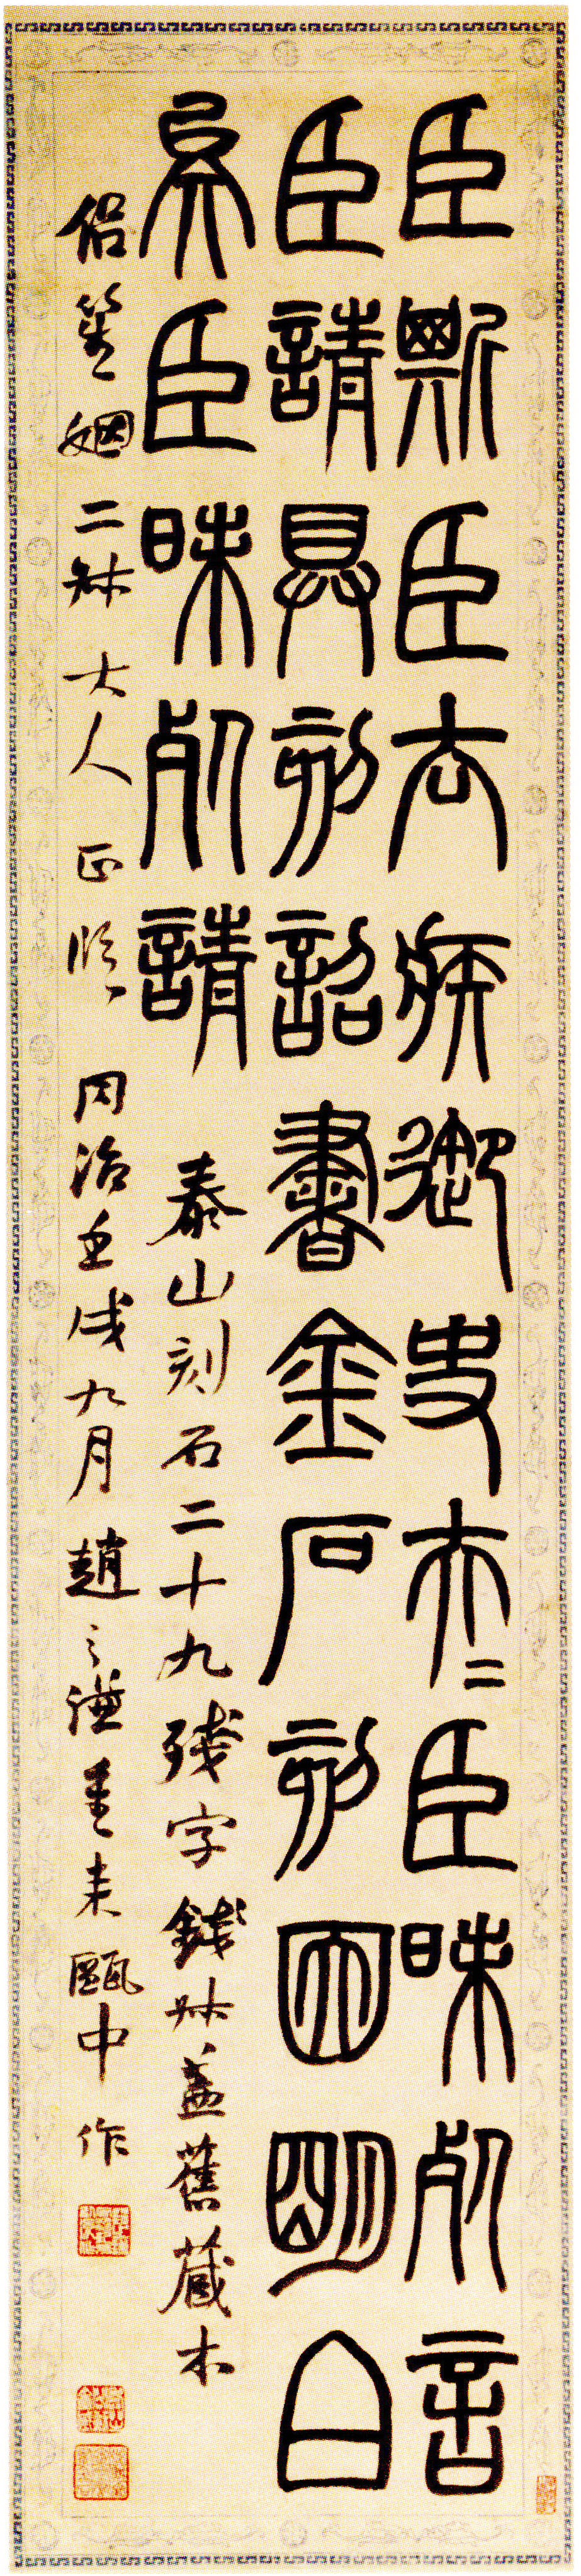 臣斯臣去疾御史夫〻臣昧死言
臣請具刻詔書金石刻因明白
矣臣昧死請 泰山刻石二十九殘字錢叔盖舊蔵本
笙姻二叔大人正临 同治壬戌九月趙之謙重来甌中作